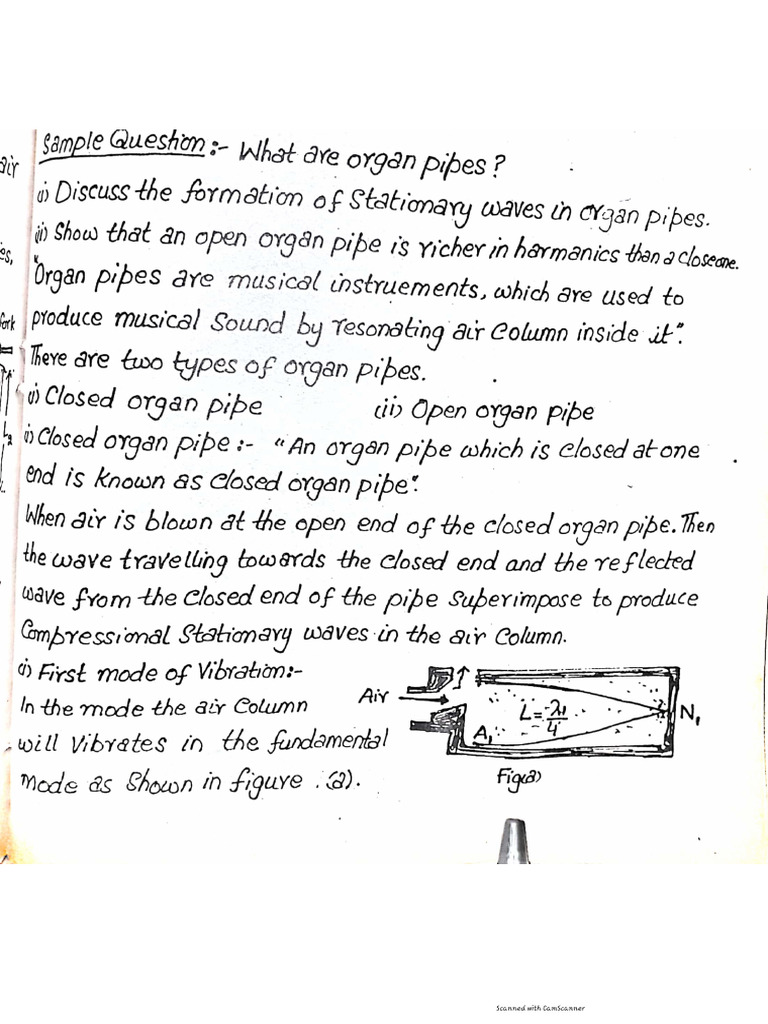 Sample Question:- What are organ pipes?
i) Discuss the formation of Stationary waves in organ pipes.
ii) Show that an open organ pipe is richer in harmanics than a close one.
"Organ pipes are musical instruements, which are used to
produce musical Sound by resonating air Column inside it".
There are two types of organ pipes.
i) Closed organ pipe (ii) Open organ pipe
i) Closed organ pipe :- "An organ pipe which is closed at one
end is known as closed organ pipe".
When air is blown at the open end of the closed organ pipe. Then
the wave travelling towards the closed end and the reflected
wave from the closed end of the pipe Superimpose to produce
Compressional Stationary waves in the air Column.
i) First mode of Vibration:-
In the mode the air Column
will Vibrates in the fundamental
mode as Shown in figure . (a).
Air
L = λ1/4
A1
N1
Fig(a)
air
es,
fork
L2
Scanned with CamScanner